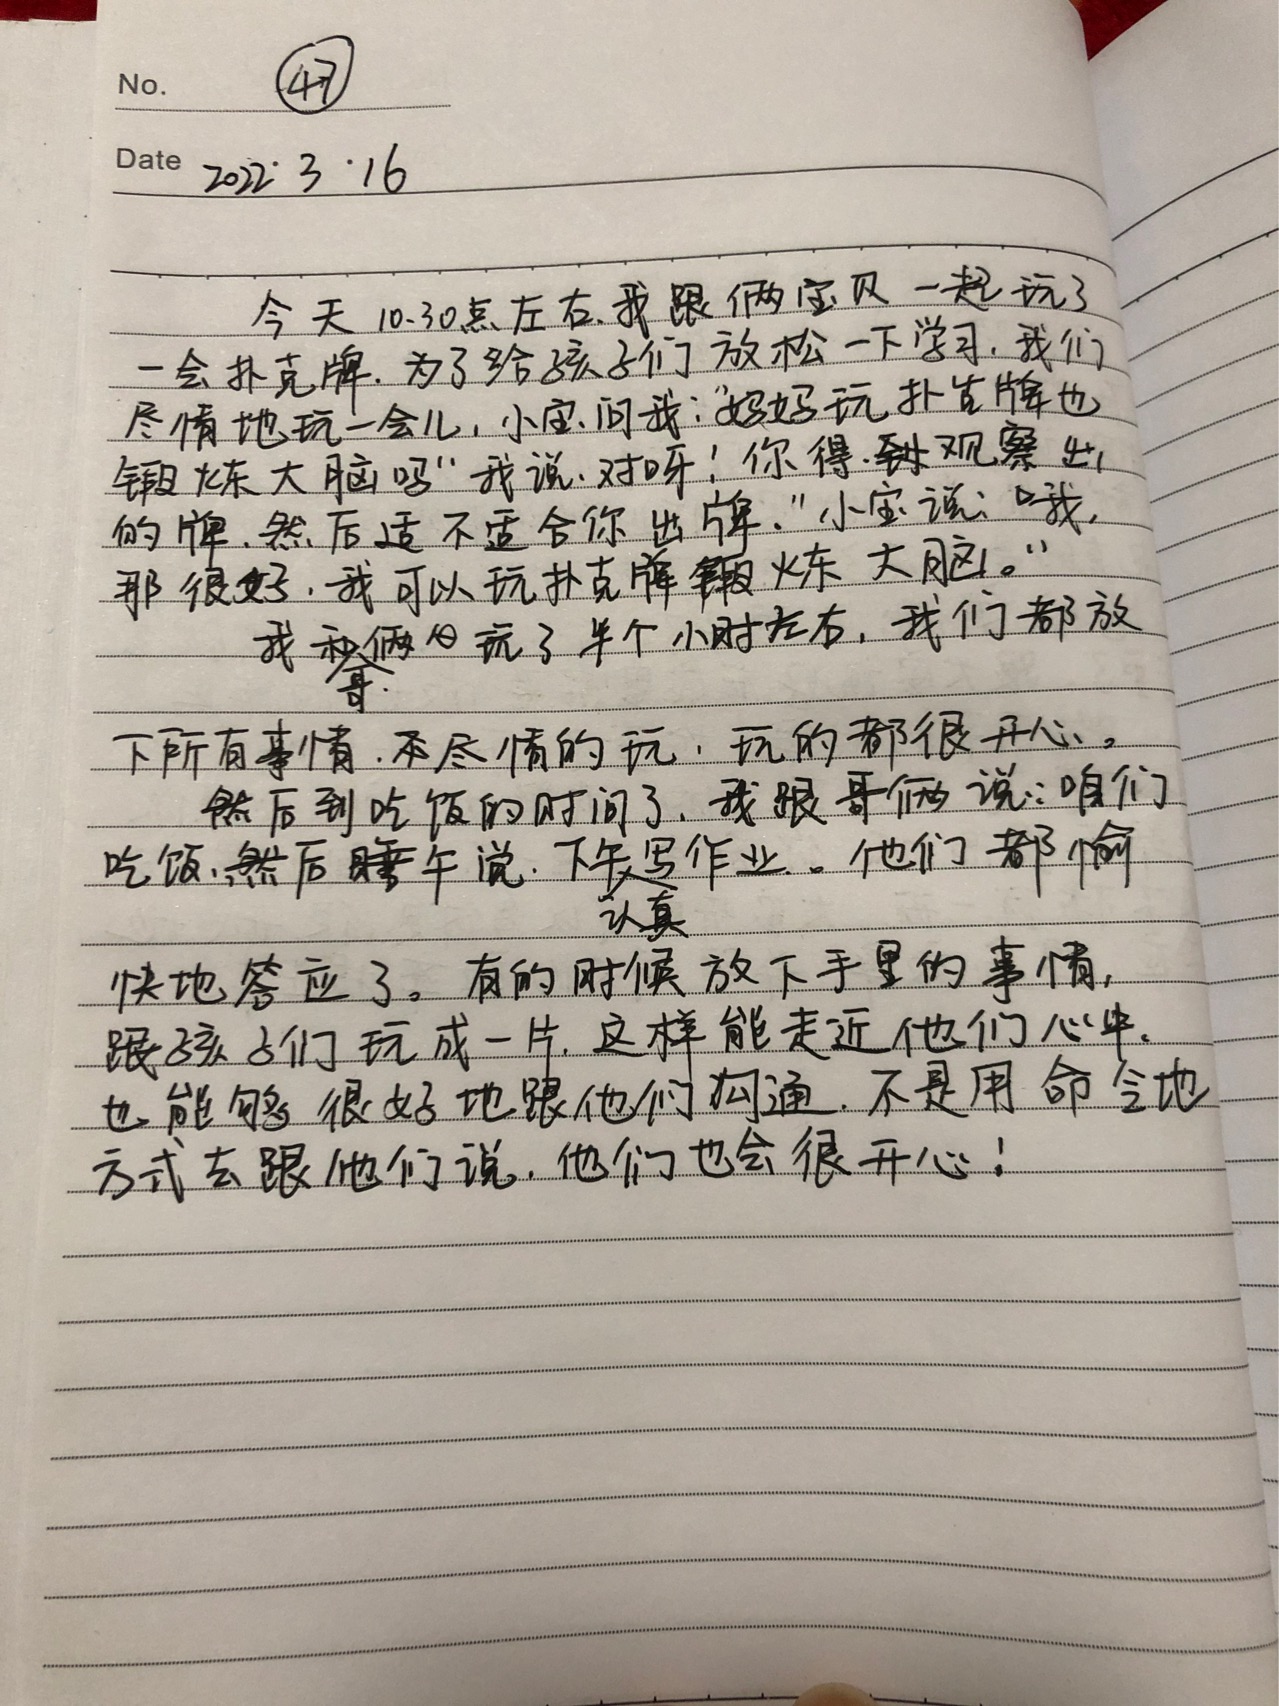 No. 47
Date 2022.3.16
今天10.30点左右,我跟俩宝贝一起玩了
一会扑克牌.为了给孩子们放松一下学习,我们
尽情地玩一会儿,小宝问我:"妈妈玩扑克牌也
锻炼大脑吗"我说.对呀!你得观察出
的牌.然后适不适合你出牌."小宝说:"哦,
那很好,我可以玩扑克牌锻炼大脑。"
我和哥俩玩了半个小时左右,我们都放
下所有事情.尽情的玩,玩的都很开心。
然后到吃饭的时间了,我跟哥俩说:咱们
吃饭.然后睡午说.下午认真写作业。他们都愉
快地答应了。有的时候放下手里的事情,
跟孩子们玩成一片.这样能走近他们心中.
也能够很好地跟他们沟通.不是用命令地
方式去跟他们说.他们也会很开心!